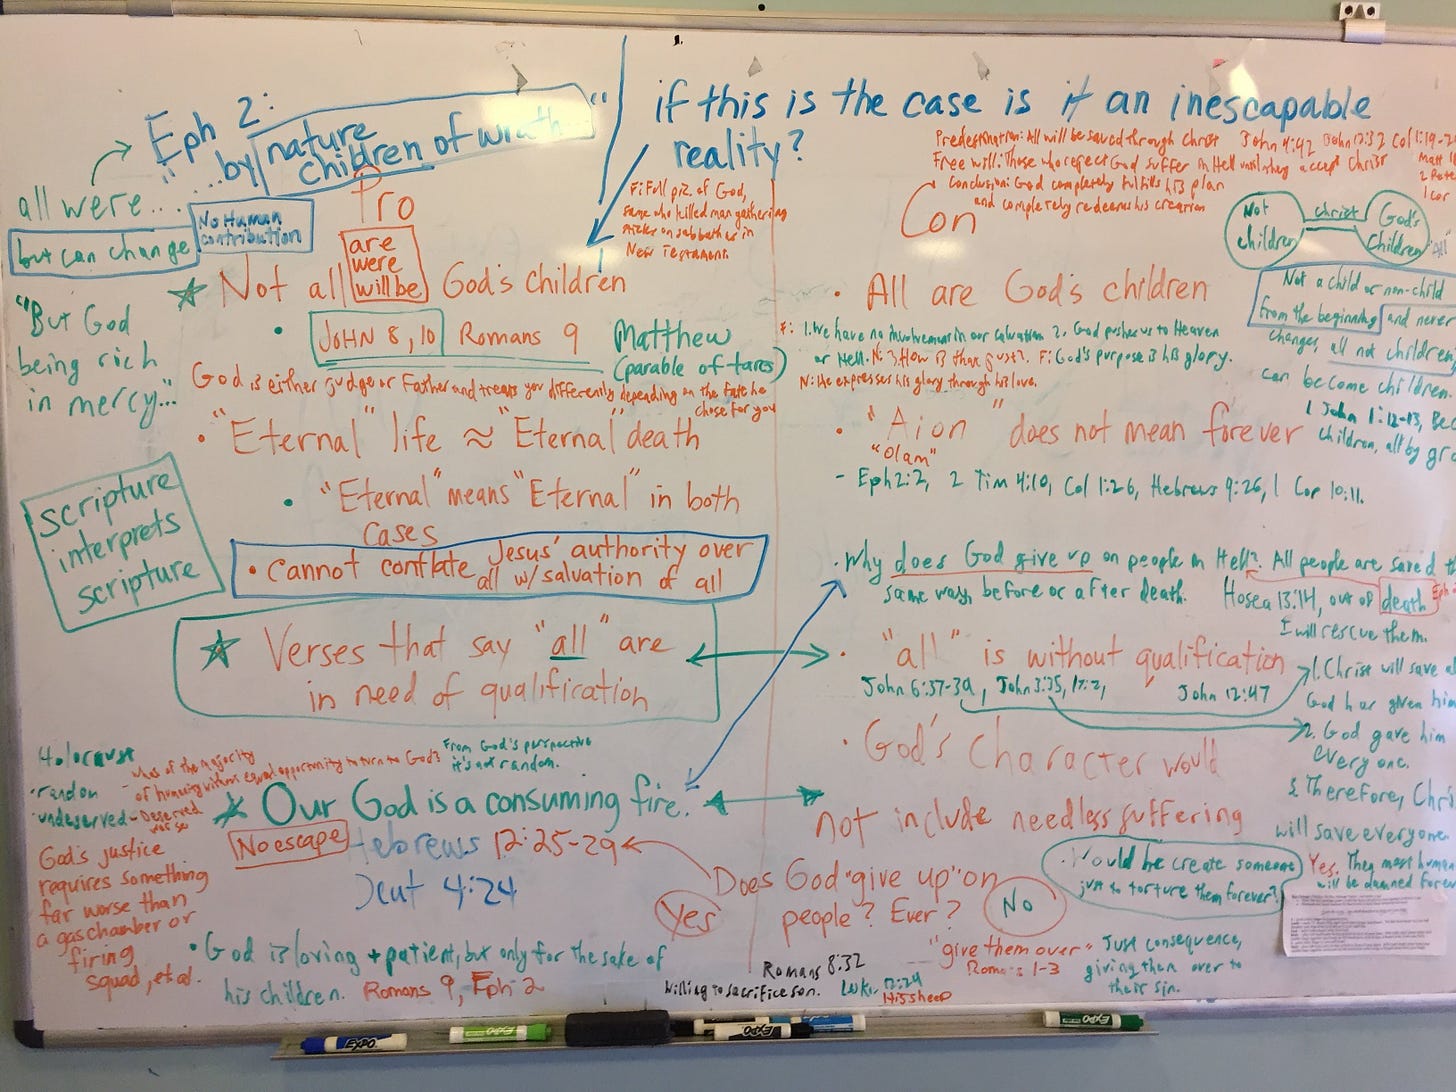 Eph 2:
"...by nature
children of wrath..."
all were...
but can change
No Human
contribution
"But God
being rich
in mercy..."
scripture
interprets
scripture
if this is the case is it an inescapable
reality?
Pro
F: Full pic. of God,
same who killed man gathering
sticks on sabbath as in
New Testament.
Not all are
were
will be God's children
• JOHN 8, 10 Romans 9 Matthew
(parable of tares)
God is either judge or Father and treats you differently depending on the fate he
chose for you
• "Eternal" life ≈ "Eternal" death
• "Eternal" means "Eternal" in both
cases
• Cannot conflate Jesus' authority over
all w/ salvation of all
Verses that say "all" are
in need of qualification
Holocaust
• random
• undeserved - Deserved
worse
- Was of the majority
of humanity without equal opportunity to turn to God?
From God's perspective
it's not random.
Our God is a consuming fire.
No escape
Hebrews 12:25-29
Deut 4:24
God's justice
requires something
far worse than
a gas chamber or
firing
squad, et al.
• God is loving + patient, but only for the sake of
his children. Romans 9, Eph 2
Predestination: All will be saved through Christ John 4:42 John 12:32 Col 1:19-2
Free will: Those who reject God suffer in Hell until they accept Christ
Conclusion: God completely fulfills his plan
and completely redeems his creation
Matt
2 Pete
1 Cor
Con
Not
children
Christ
God's
Children
"All"
• All are God's children
F: 1. We have no involvement in our salvation 2. God pushes us to Heaven
or Hell. N: 3. How is that just? F: God's purpose is his glory.
N: He expresses his glory through his love.
Not a child or non-child
from the beginning and never
changes, all not children
can become children.
1 John 1:12-13, Bec
children, all by gra
• "Aion" does not mean forever
"Olam"
- Eph 2:2, 2 Tim 4:10, Col 1:26, Hebrews 9:26, 1 Cor 10:11.
• Why does God give up on people in Hell? All people are saved th
same way, before or after death. Hosea 13:14, out of death
I will rescue them.
• "all" is without qualification
John 6:37-39, John 3:35, 17:2, John 12:47
1. Christ will save al
God has given him
2. God gave him
everyone.
3. Therefore, Chri
will save everyone.
• God's character would
not include needless suffering
Would he create someone
just to torture them forever?
Yes. They most human
will be damned forev
Does God "give up" on
people? Ever?
Yes
No
"give them over"
Romans 1-3
Just consequence,
giving them over to
their sin.
Romans 8:32
willing to sacrifice son.
His sheep
EXPO
EXPO
EXPO
EXPO